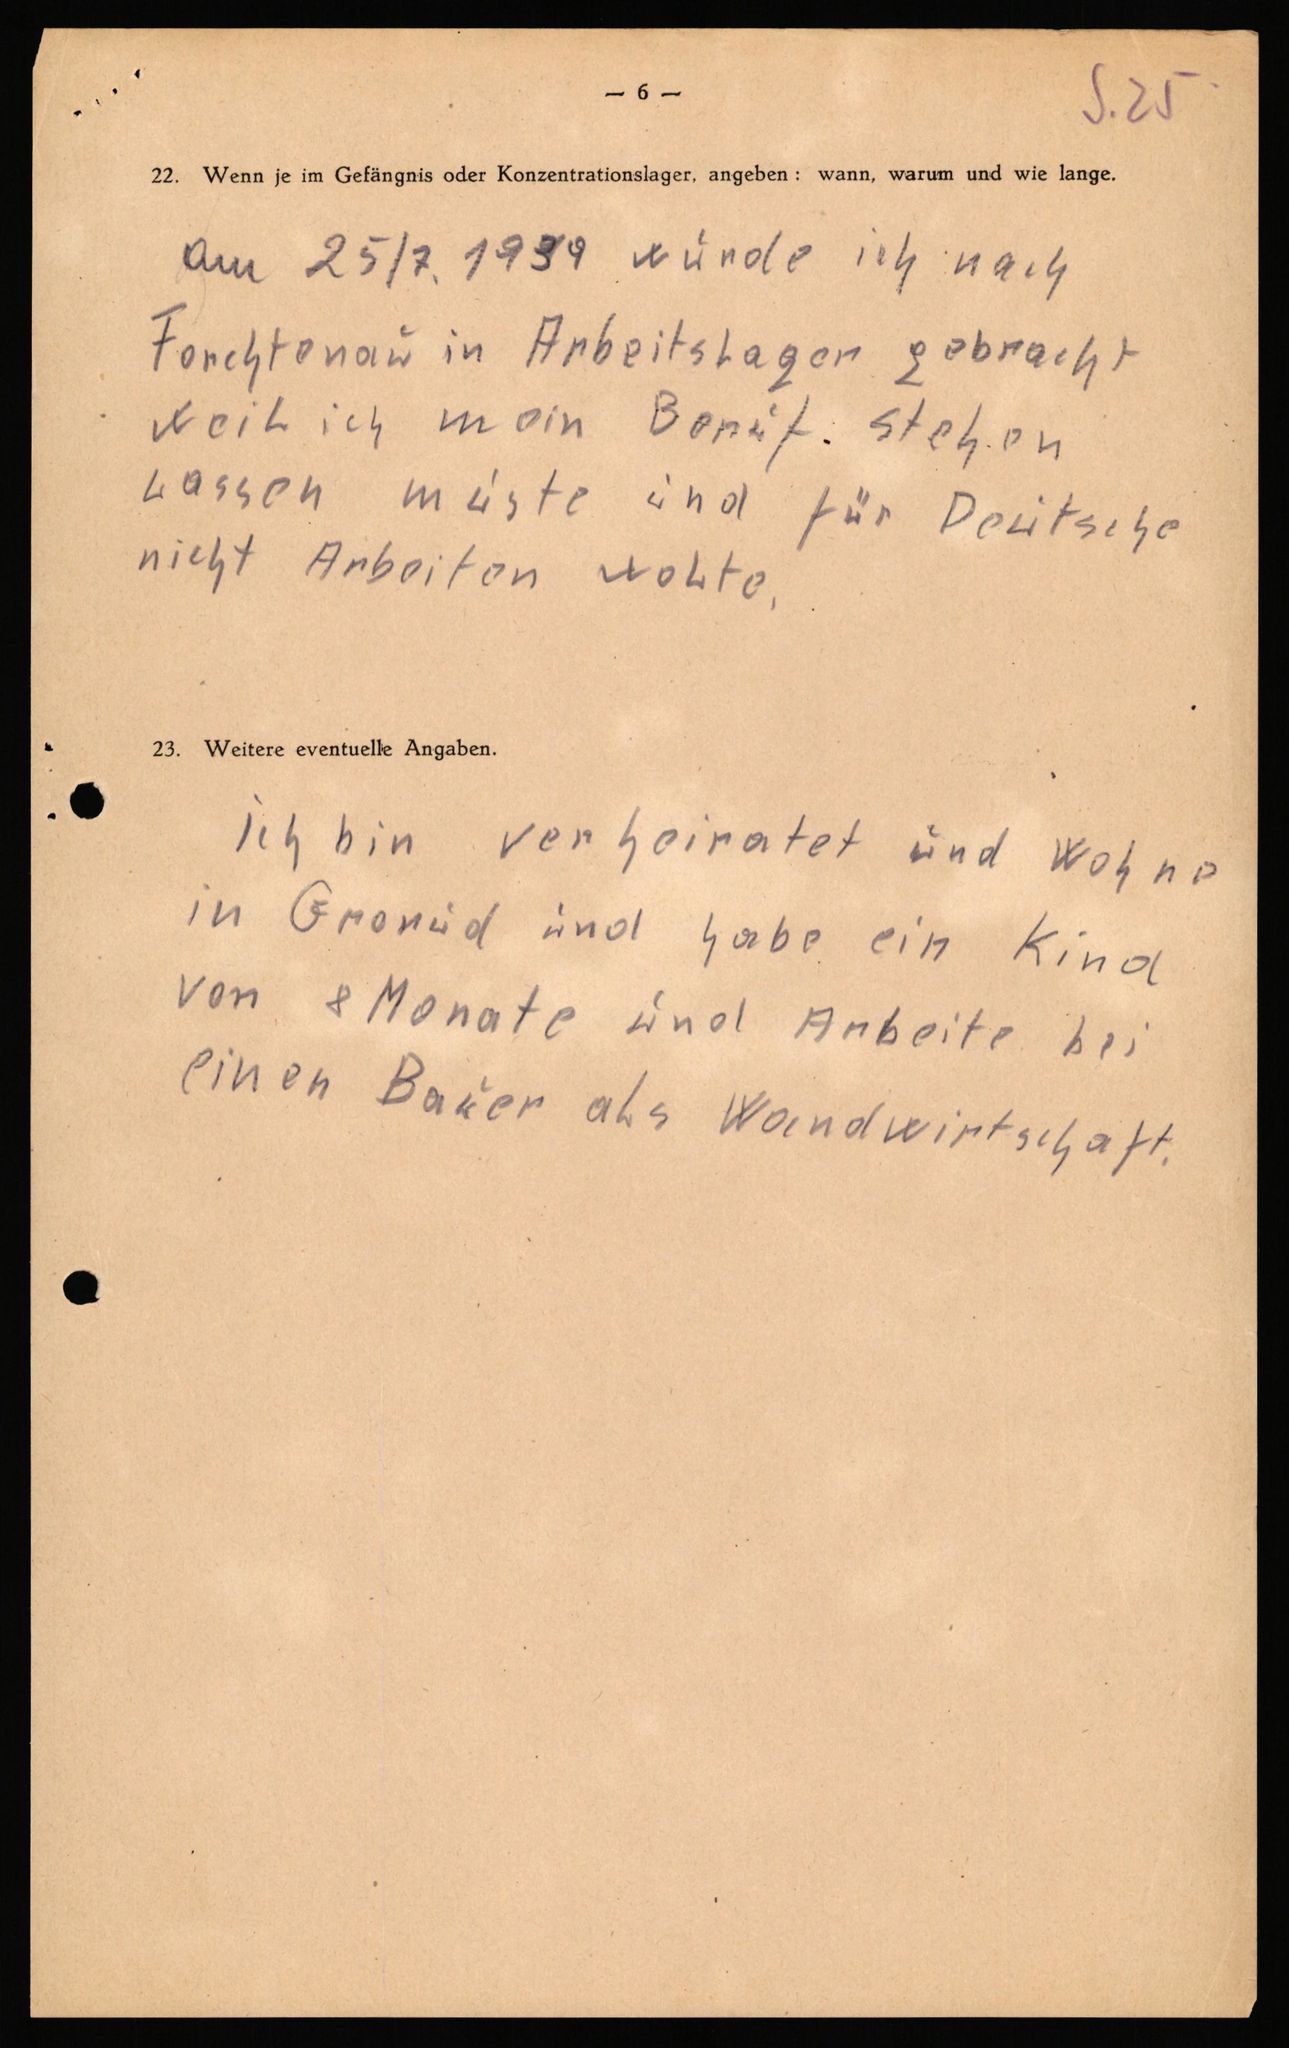 — 6 —
S. 25
22. Wenn je im Gefängnis oder Konzentrationslager, angeben: wann, warum und wie lange.
Am 25/7. 1939 wurde ich nach
Forchtenau in Arbeitslager gebracht
weil ich mein Beruf. stehen
lassen muste und für Deutsche
nicht Arbeiten wolte.
23. Weitere eventuelle Angaben.
ich bin verheiratet und Wohne
in Gronud und habe ein Kind
von 8 Monate und Arbeite bei
einen Bauer als Wandwirtschaft.